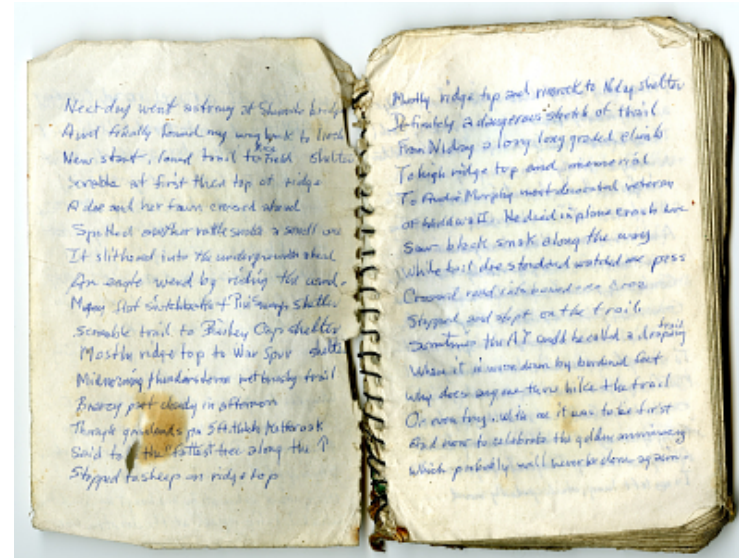 Next day went astray at Shumate bridge
And finally found my way back to track
New start, found trail to Rice Field shelter
Scramble at first then top of ridge
A doe and her fawn crossed ahead
Spotted another rattlesnake a small one
It slithered into the undergrowth ahead
An eagle went by riding the wind.
Many flat switchbacks + Pine Swamp shelter
Scramble trail to Bailey Gap shelter
Mostly ridge top to War Spur shelter
Midmorning thunderstorm wet brushy trail
Breezy part cloudy in afternoon
Through grasslands pa 5ft. thick Keffer oak
Said to the fattest tree along the
Stopped to sleep on ridge top
Mostly ridge top and rimrock to Niday shelter
Definitely a dangerous stretch of trail
From Niday a long long graded climb
To high ridge top and memorial
To Audie Murphy most decorated veteran
of world war II. He died in plane crash here
Saw black snake along the way
White tail doe stood and watched me pass
Crossed road
Stopped and slept on the trail.
Sometimes the AT could be called a trail
When it is worn down by booted feet
Why does anyone thru hike the trail
Or even try, with me it was to be first
And now to celebrate the golden anniversary
Which probably will never be done again.